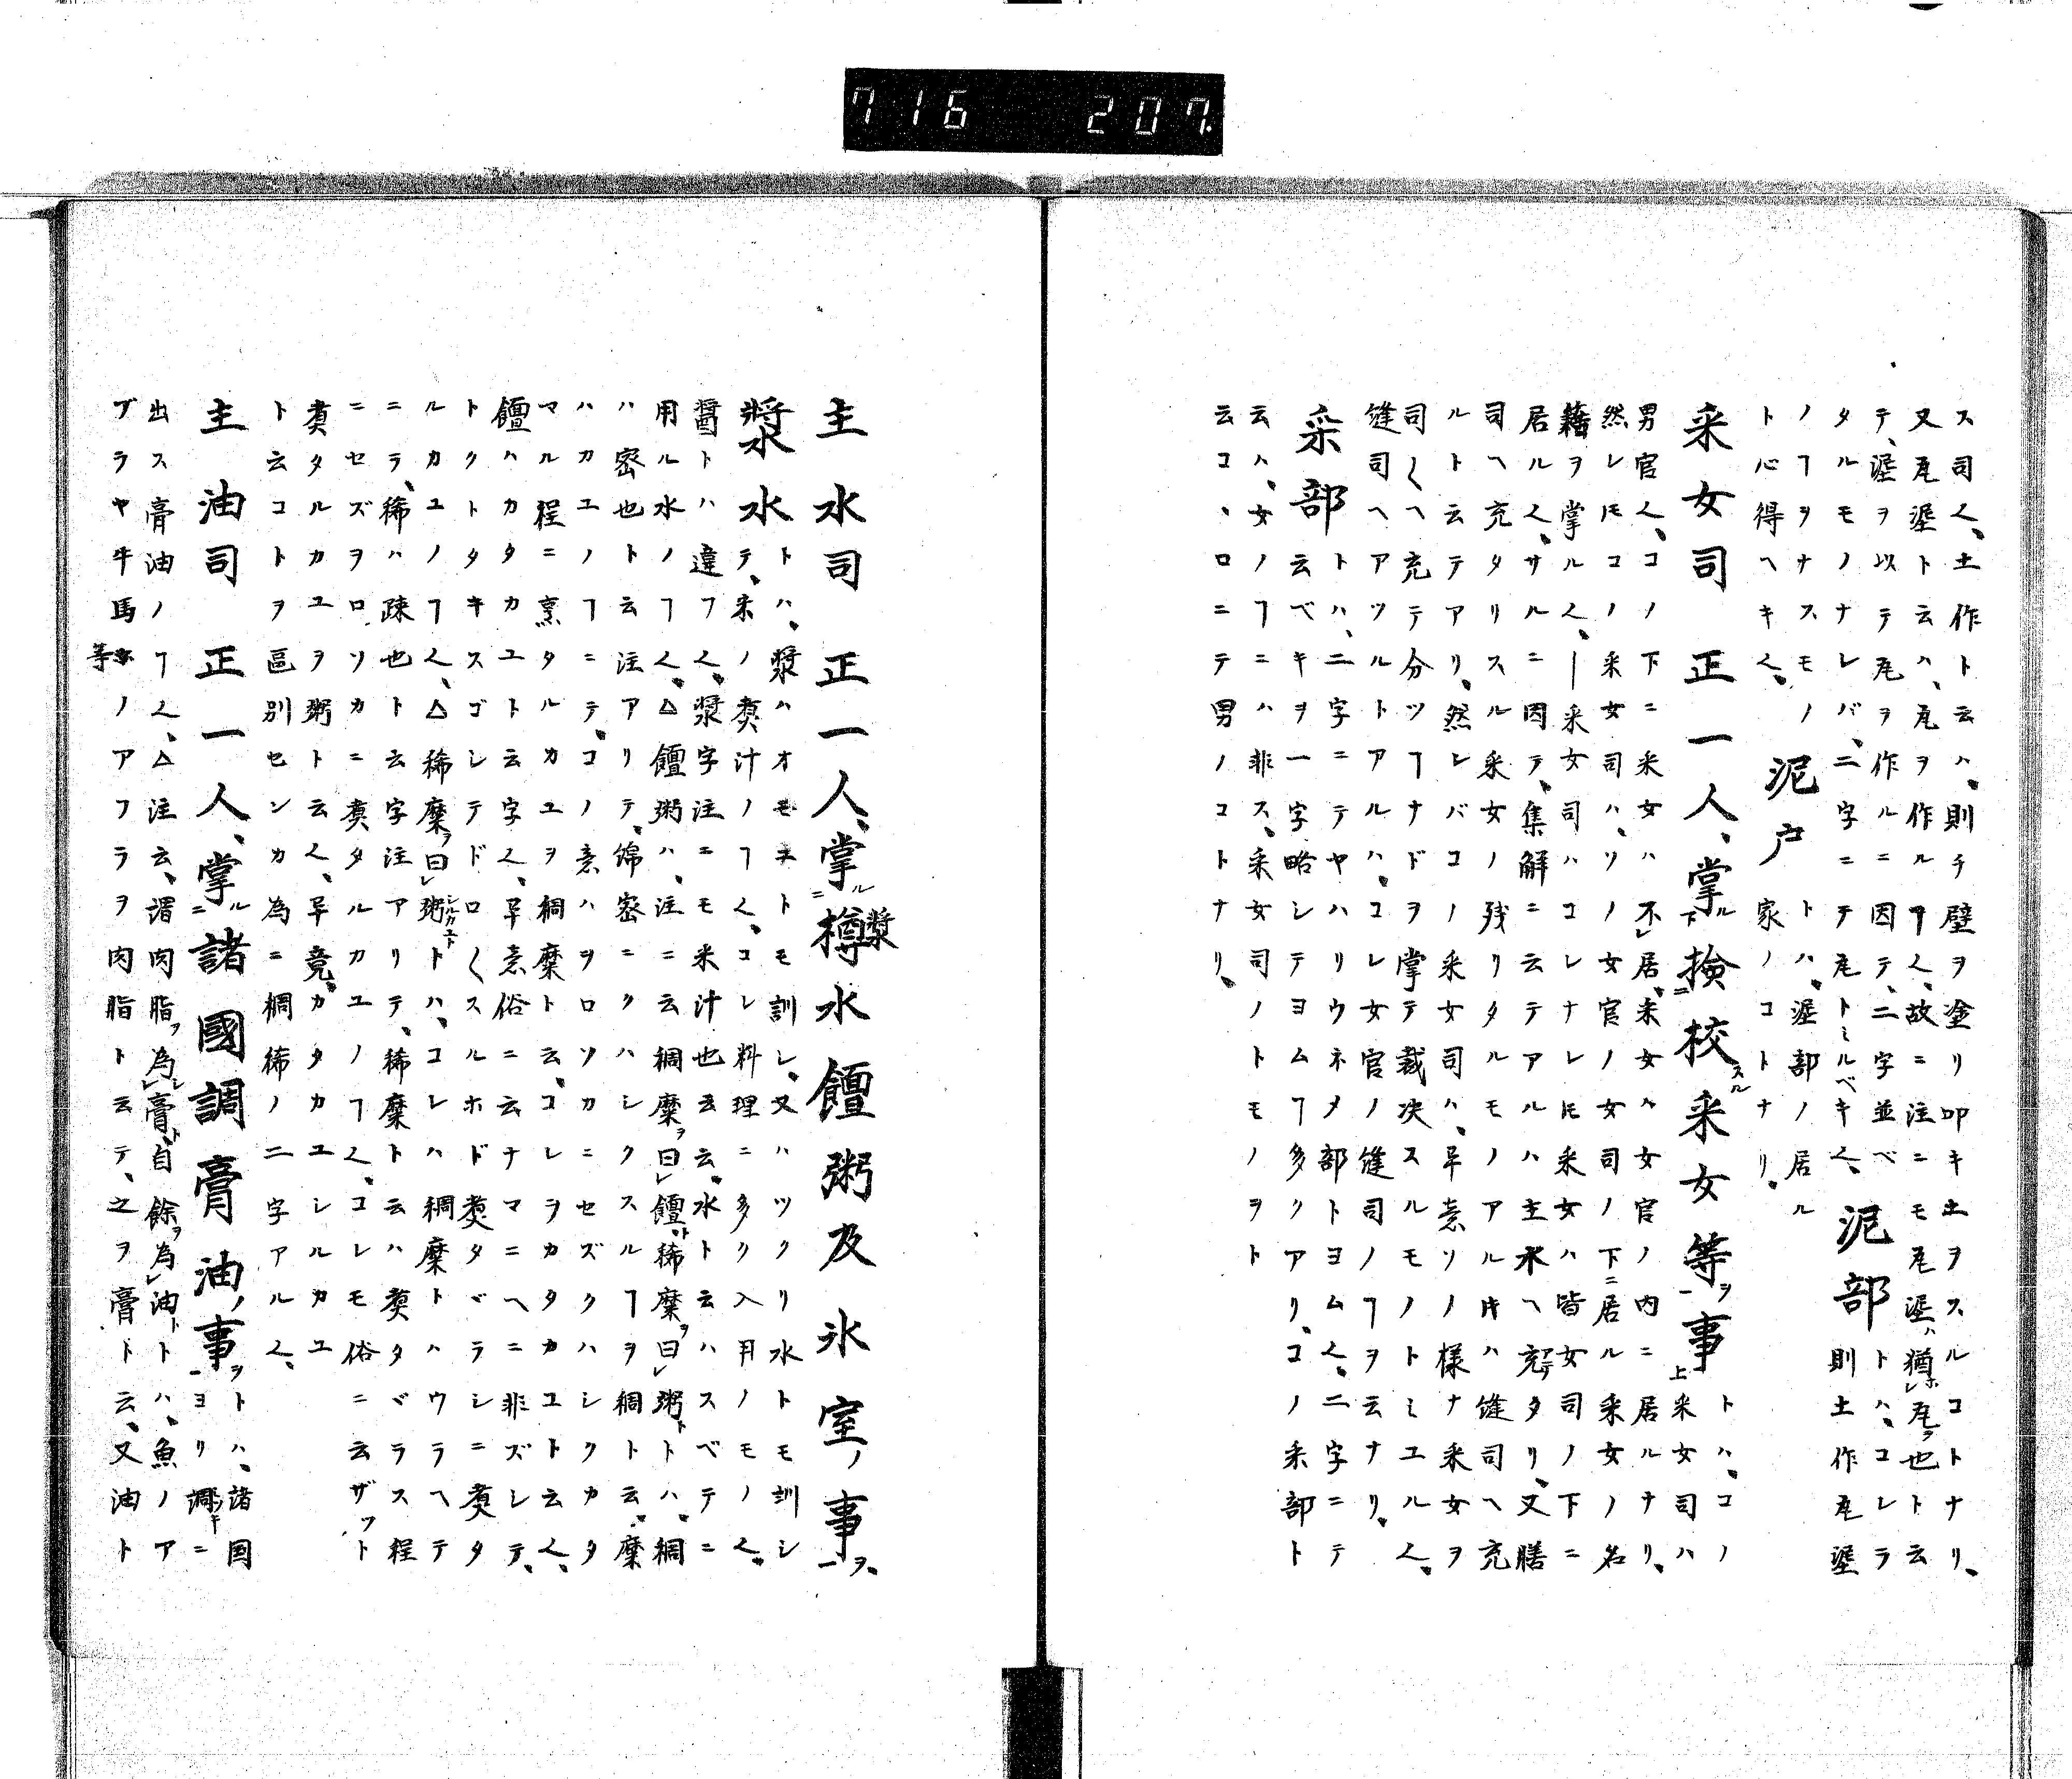 716 207.
ス司人、土作ト云ハ、則チ壁ヲ塗リ叩キ土ヲスルコトナリ、
又瓦埿ト云ハ、瓦ヲ作ルヿ人、故ニ注ニモ瓦埿ハ猶ホレ瓦ヲ也ト云
テ、埿ヲ以テ瓦ヲ作ルニ因テ、二字並ベトハ、コレラ
タルモノナレバ、二字ニテ瓦トミルベキ人、泥部則土作瓦埿
ノヿヲナスモノ泥戸トハ、埿部ノ居ル
ト心得ヘキ人、家ノコトナリ、
采女司 正一人、掌ル下撿ニ校スル采女等ヲ一事上トハ、コノ
采女司ハ
男官人、コノ下ニ采女ハ不レ居、采女ハ女官ノ内ニ居ルナリ、
然レ𪜈コノ采女司ハ、ソノ女官ノ女司ノ下ニ居ル采女ノ名
籍ヲ掌ル人、｜采女司ハコレナレ𪜈采女ハ皆女司ノ下ニ
居ル人、サルニ因テ、集解ニ云テアルハ主水ヘ充タリ、又膳
司ヘ充タリスル采女ノ残リタルモノアル𪜈ハ縫司ヘ充
ルト云テアリ、然レバコノ采女司ハ、畢意ソノ様ナ采女ヲ
司〱ヘ充テ分ツヿナドヲ掌テ裁决スルモノトミユル人、
縫司ヘアツルトアルハ、コレ女官ノ縫司ノヿヲ云ナリ、
采部トハ、二字ニテヤハリウネメ部トヨム人、二字ニテ
云ベキヲ一字略シテヨムヿ多クアリ、コノ采部ト
云ハ、女ノヿニハ非ス、采女司ノトモノヲト
云コヽロニテ男ノコトナリ、
主水司 正一人、掌ル二樽漿水饘粥及氷室ノ事ヲ一、
漿水トハ、漿ハオモヰトモ訓レ、又ハツクリ水トモ訓シ
テ、米ノ煑汁ノヿ人、コレ料理ニ多ク入用ノモノ人、
醤トハ違フ人、漿字注ニモ米汁也云云、水ト云ハスベテニ
用ル水ノヿ人、△饘粥ハ、注ニ云稠糜ヲ曰レ饘ト稀糜ヲ曰レ粥トトハ、稠
ハ密也ト云注アリテ、綿密ニクハシクスルヿヲ稠ト云、糜
ハカユノヿニテ、コノ意ハヲロソカニセズクハシクカタ
マル程ニ烹タルカユヲ稠糜ト云、コレヲカタカユト云人、
饘ハカタカユト云字人、畢意俗ニ云ナマニヘニ非ズシテ、
トクトタキスゴシテドロ〱スルホド煑タベラシニ煑タ
ルカユノヿ人、△稀糜ヲ曰レ粥トハ、コレハ稠糜トハウラヘテ
ニラ、稀ハ疎也ト云字注アリテ、稀糜ト云ハ煑タベラス程
ニセズヲロソカニ煑タルカユノヿ人、コレモ俗ニ云ザフト
煑タルカユヲ粥ト云人、畢竟カタカユシルカユ
ト云コトヲ區別センカ為ニ稠稀ノ二字アル人、
主油司 正一人、掌ル二諸國調膏油ノ事ヲ一トハ、諸国
ヨリ調ニ
出ス膏油ノヿ人、△注云、謂肉脂ヲ為シレ膏ト、自餘ヲ為レ油トトハ、魚ノア
ブラヤ牛馬等ノアフラヲ肉脂ト云テ、之ヲ膏ト云、又油ト